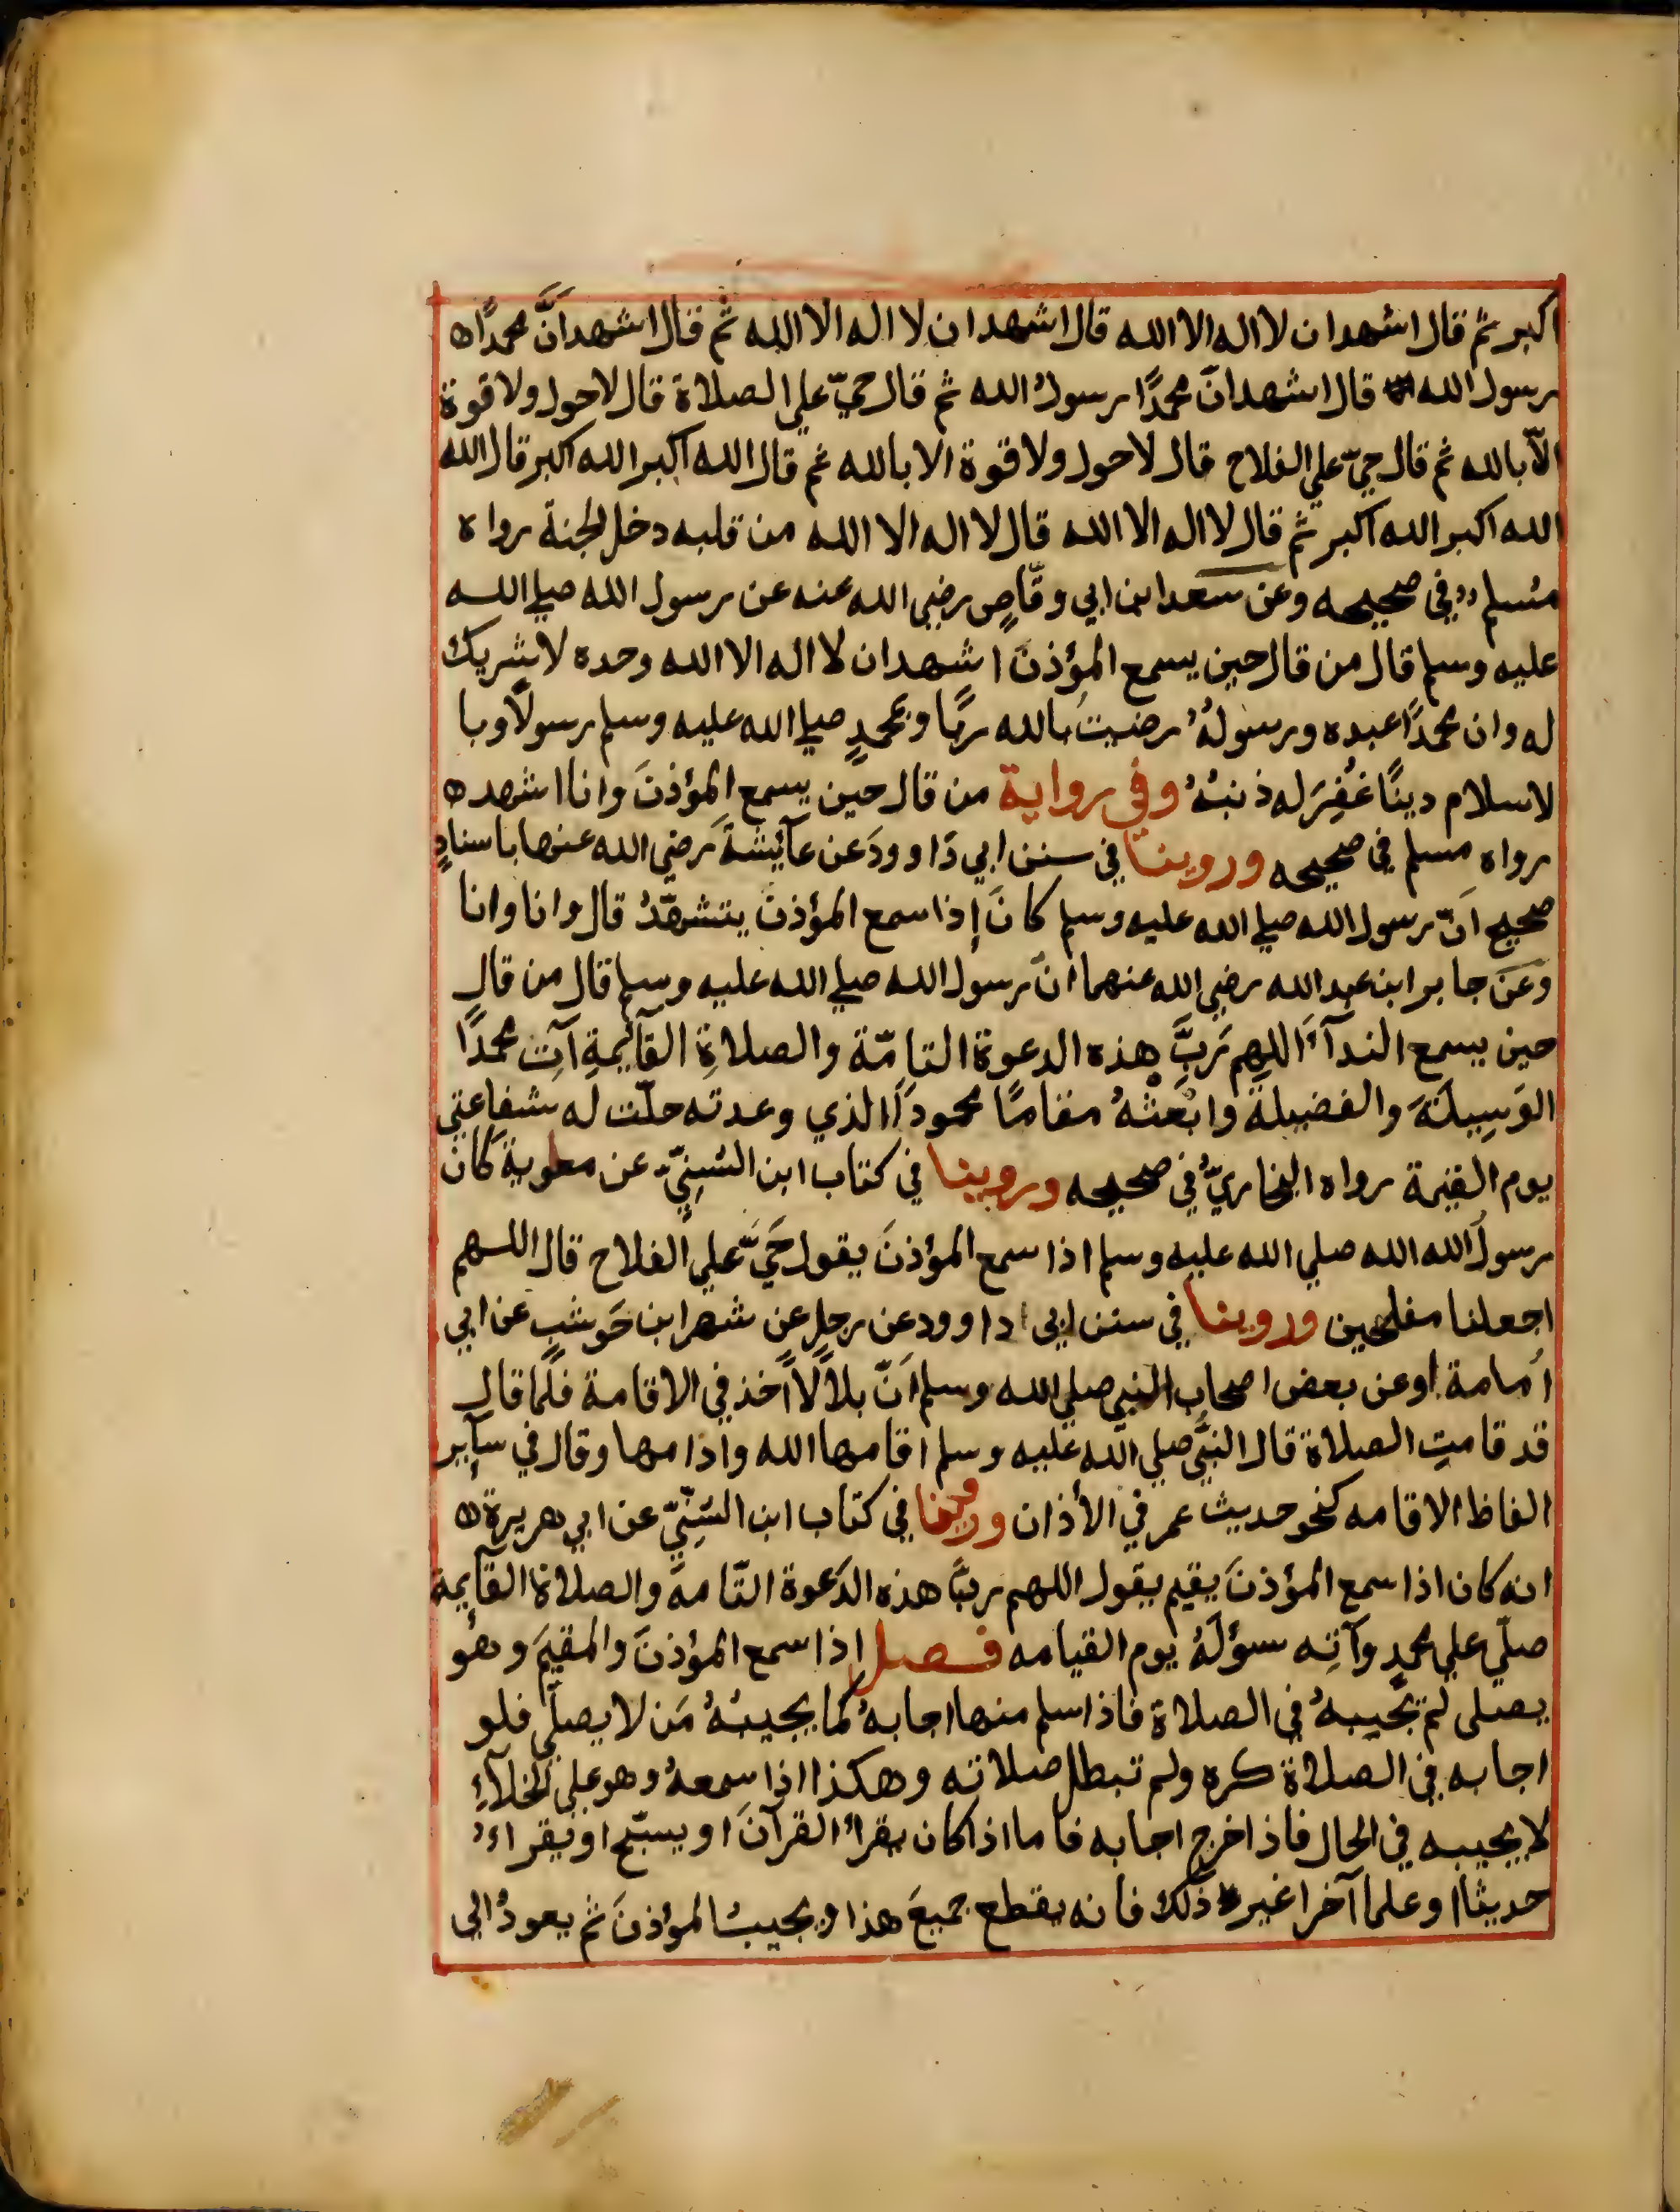 اكبر ثم قال اشهد ان لا اله الا الله قال اشهد ان لا اله الا الله ثم قال اشهد اَنَّ محمدًا
رسول الله قال اشهد انّ محمدًا رسولُ الله ثم قال حيّ علي الصلاة قال لا حول ولا قوة
الاّ بالله ثم قال حيّ علي الفلاح قال لا حول ولا قوة الا بالله ثم قال الله اكبر الله اكبر قال الله
الله اكبر الله اكبر ثم قال لا اله الا الله قال لا اله الا الله من قلبه دخل الجنة رواه
مُسلم في صحيحه وعن سعد ابن ابي وقّاصٍ رضي الله عنه عن رسول الله صلي الله
عليه وسلم قال من قال حين يسمع المؤذنَ اشهد ان لا اله الا الله وحده لا شريك
له وان محمدًا عبده ورسولهُ رضيتُ بالله ربًا وبمحمدٍ صلي الله عليه وسلم رسولاً وبا
لاسلام دينًا غُفِرَ له ذنبُهُ وفي رواية من قال حين يسمع المؤذنَ وانا اشهد
رواه مسلم في صحيحه وروينا في سنن ابي دَاوودَ عن عآئِشةَ رضي الله عنها باسنادٍ
صحيح اَنّ رسول الله صلي الله عليه وسلم كانَ إذا سمع المؤذنَ يتشهّدُ قال وانا وانا
وعَن جابر ابن عبد الله رضي الله عنهما انّ رسول الله صلي الله عليه وسلم قال من قال
حين يسمع الندآءَ اللهم رَبَّ هذه الدعوة التامّة والصلاةِ القآئِمةِ آتِ محمدًا
الوَسِيلَةَ والفضيلة وابْعثْهُ مقامًا محمودًا الذي وعدته حلّت له شفاعتي
يوم القيمة رواه البخاريُّ في صحيحه وروينا في كتاب ابن السُنِيّ عن معاوية كان
رسولُ الله الله صلي الله عليه وسلم اذا سمع المؤذنَ يقول حَيَّ علي الفلاح قال اللهم
اجعلنا مفلحين وروينا في سنن ابي داوود عن رجلٍ عن شهر ابن حَوشبٍ عن ابي
اُمامة او عن بعض اصحاب النبي صلي الله وسلم اَنّ بلالاً اَخذ في الاقامة فلمّا قال
قد قامتِ الصلاة قال النبيُّ صلي الله عليه وسلم اقامها الله واَدامها وقال في سآئِر
الفاظ الاقامه كنحو حديث عمر في الأذان وروينا في كتاب ابن السُنِّيّ عن ابي هريرة
انه كان اذا سمع المؤذنَ يقيم يقول اللهم ربَّ هذه الدَعوة التّامة والصلاة القآئِمة
صلّي علي محمدٍ وآتِه سؤلَهُ يوم القيامه فصل اِذا سمع المؤذنَ والمقيمَ وهُو
يصلى لم يجيبهُ في الصلاة فاذا سلم منها اجابهُ كما يجيبُهُ مَن لا يصلّي فلو
اجابه في الصلاة كره ولم تبطل صلاته وهكذا اذا سمعهُ وهو علي الخلآءِ
لا يجيبه في الحال فاذا خرج اجابه فاما اذا كان يقراُ القرآنَ او يسبّح او يقراءُ
حديثًا او علما آخرا غير ذلك فانه يقطع جميعَ هذا ويجيبُ المؤذنَ ثم يعودُ الى